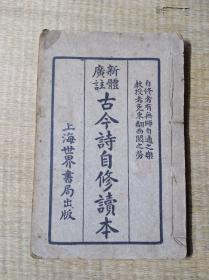 自修者有無師自通之樂
教授者免東翻西閱之勞
新體
廣註
古今詩自修讀本
上海世界書局出版